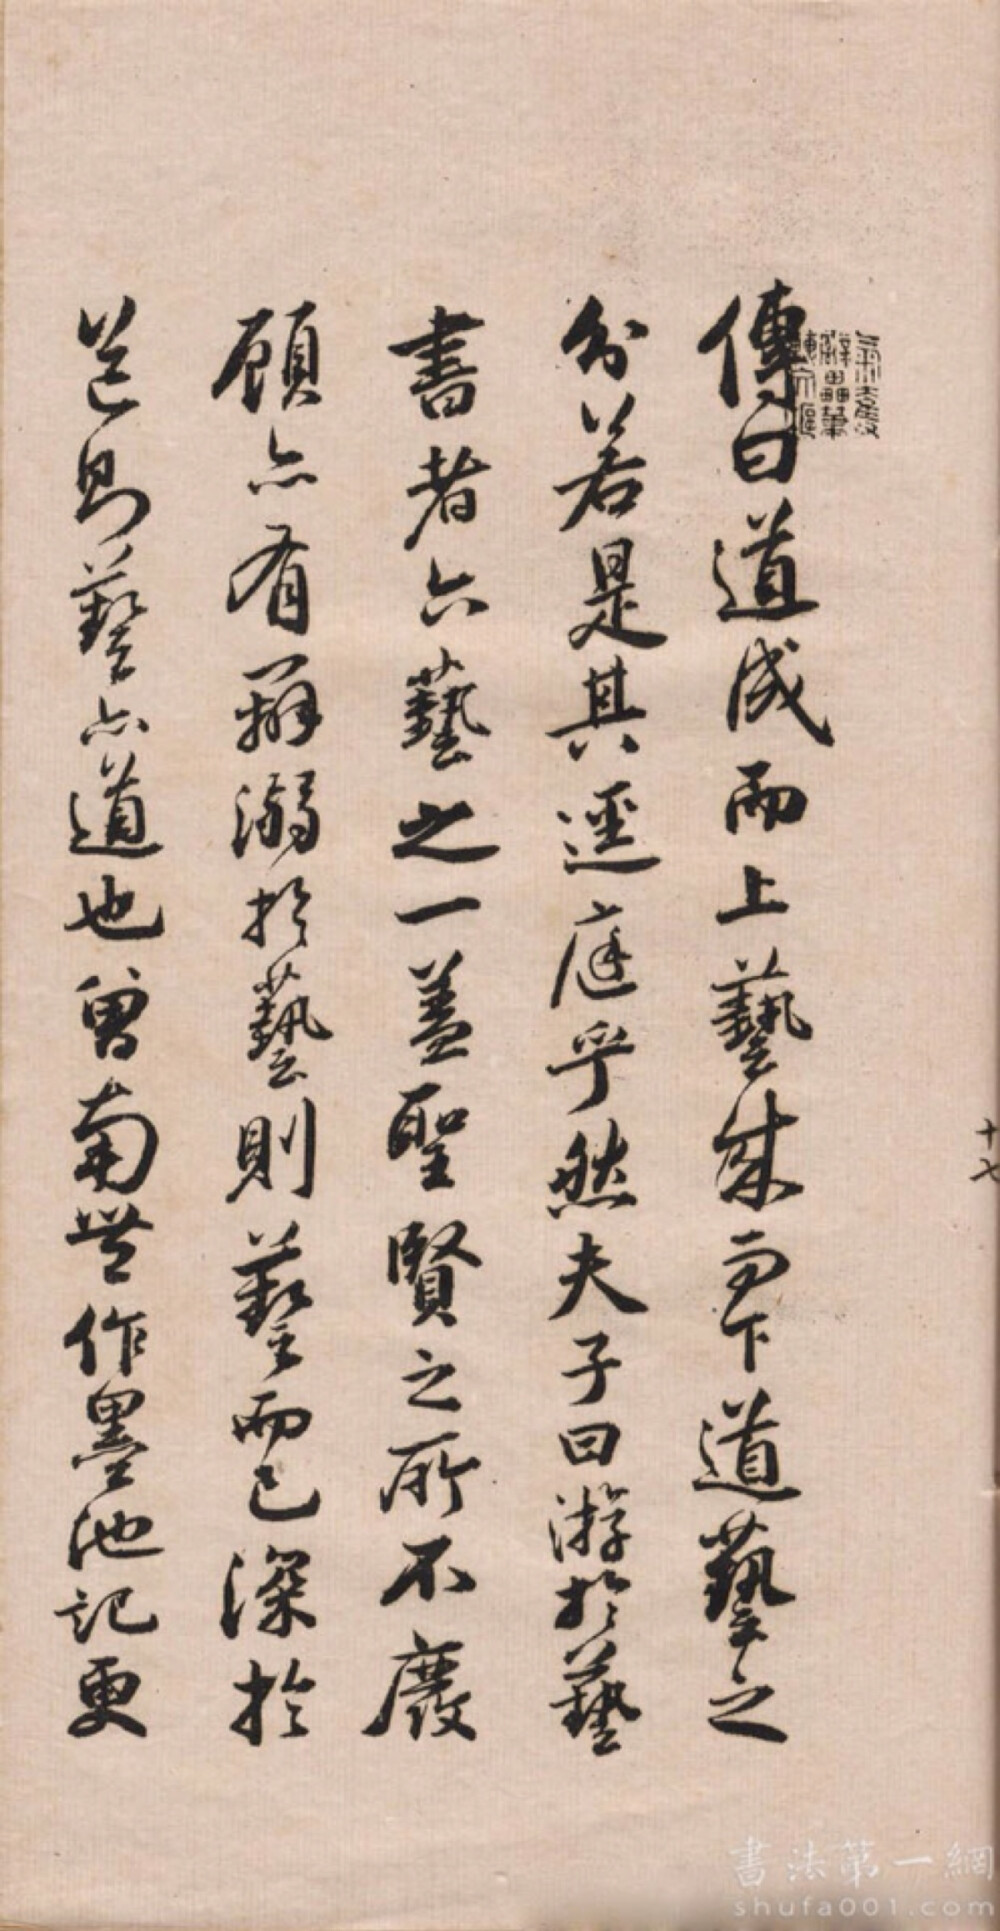 傳曰道成而上藝成而下道藝之
分若是其逕庭乎然夫子曰游於藝
書者六藝之一蓋聖賢之所不廢
顧亦有辨溺於藝則藝而已深於
道則藝亦道也曾南豐作墨池記更
十七
書法第一網
shufa001.com